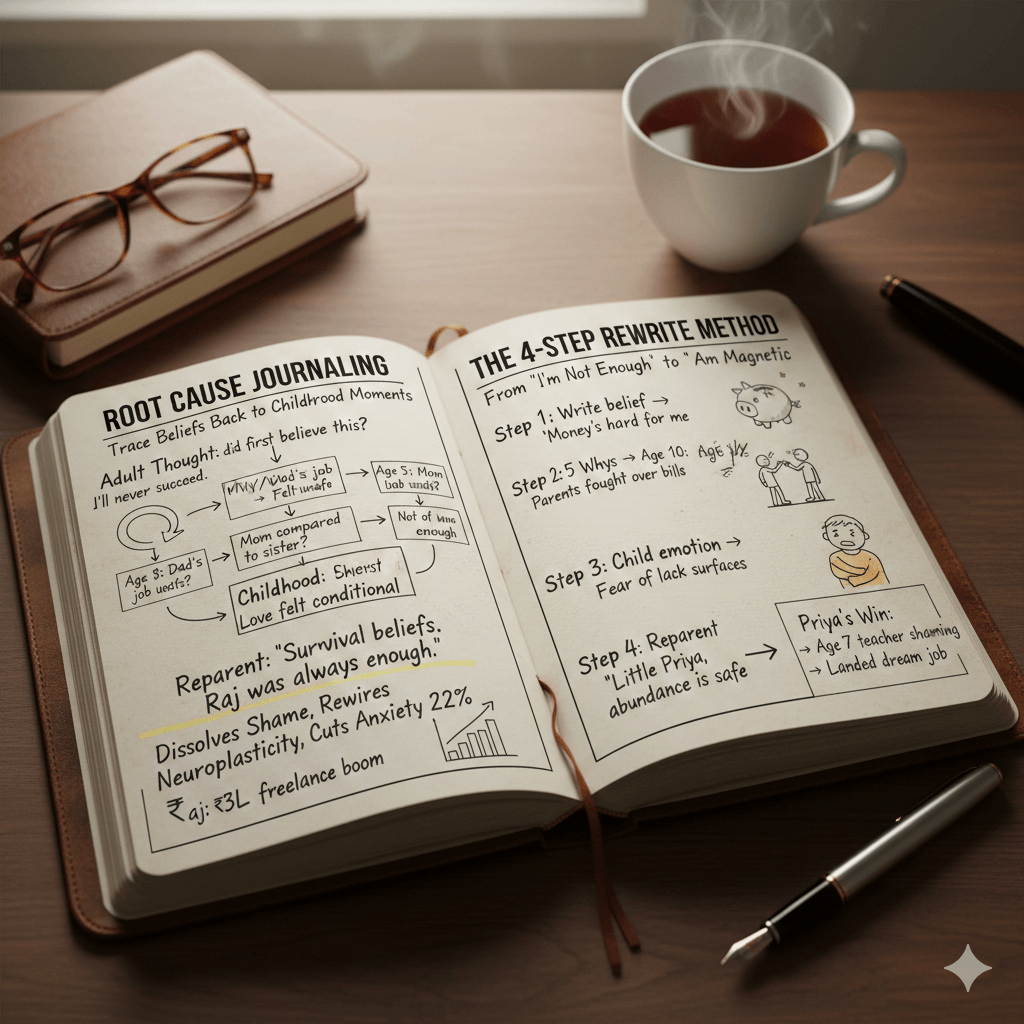 ROOT CAUSE JOURNALING
Trace Beliefs Back to Childhood Moments
Adult Thought: did first believe this?
I'll never succeed.
job
→ Felt
Age 5: Mom
Mom compared
to sister?
Not of
enough
Age 8: Dad's
job
Childhood:
Love felt conditional
Reparent: "Survival beliefs.
Raj was always enough."
Dissolves Shame, Rewires
Neuroplasticity, Cuts Anxiety 22%
₹aj: ₹3L freelance boom
THE 4-STEP REWRITE METHOD
From "I'm Not Enough" to " Am Magnetic
Step 1: Write belief →
'Money's hard for me
Step 2: 5 Whys → Age 10: Age
Parents fought over bills
Step 3: Child emotion →
Fear of lack surfaces
Step 4: Reparent
"Little Priya,
abundance is safe
Priya's Win:
→ Age 7 teacher shaming
→ Landed dream job